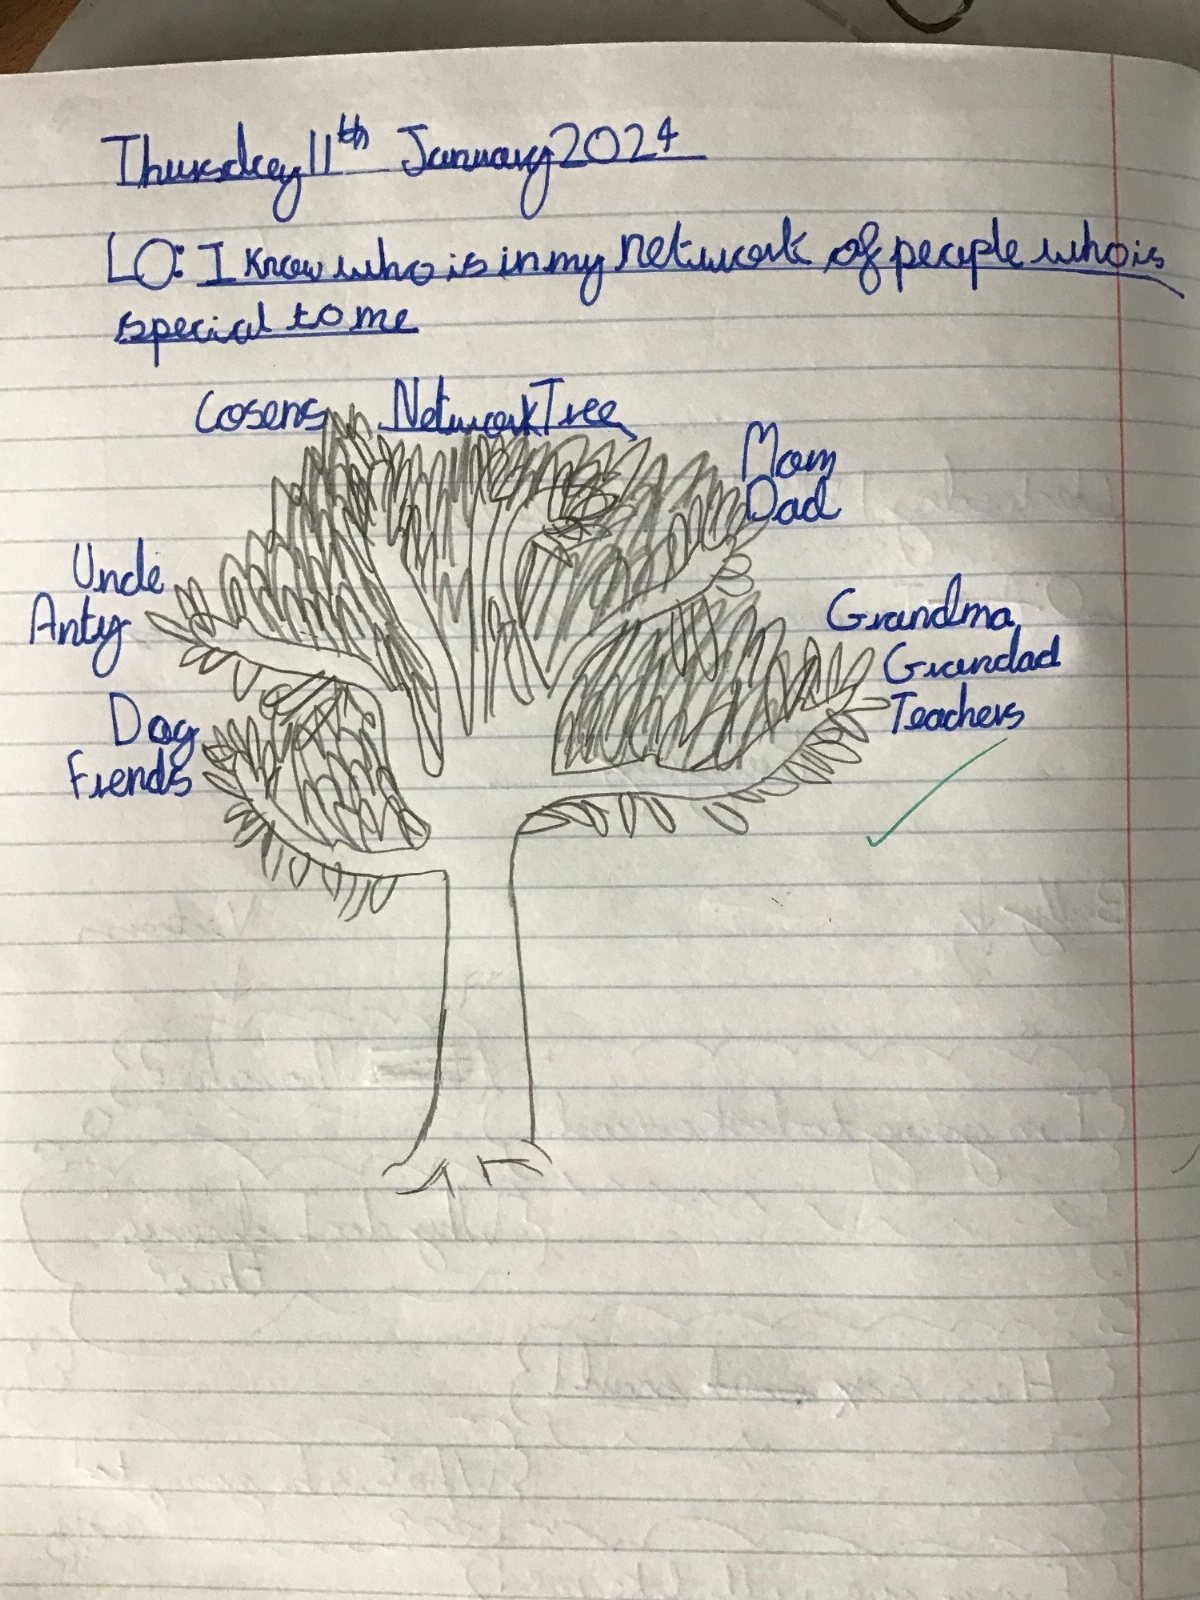 Thursday 11th January 2024
LO: I know who is in my network of people who is
special to me
Cosens Network Tree
Mom
Dad
Uncle
Anty
Grandma
Grandad
Teachers
Dog
Fiends